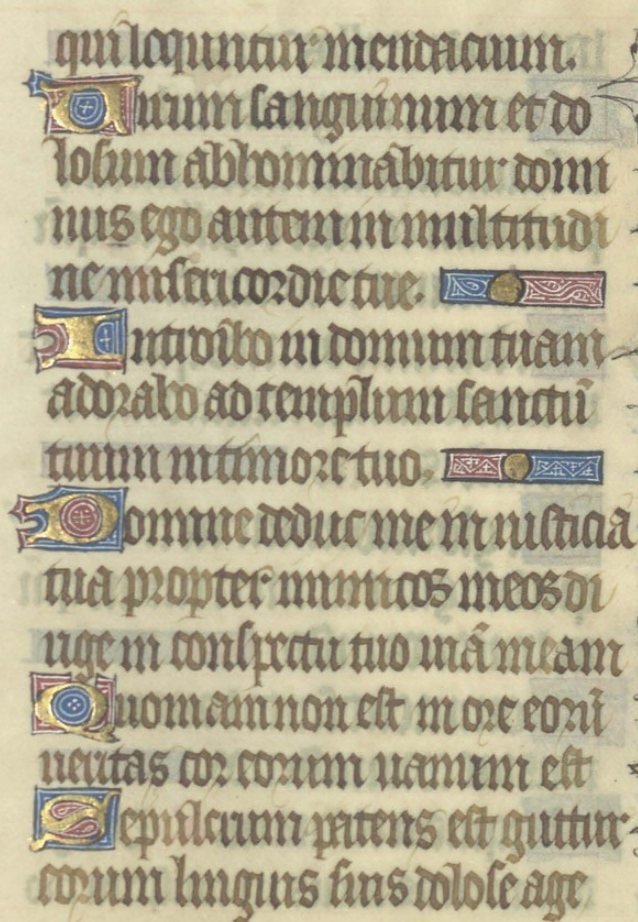 qui loquuntur mendacium.
Uirum sanguinum et do
losum abhominabitur domi
nus ego autem in multitudi
ne misericordie tue.
Introibo in domum tuam
adorabo ad templum sanctū
tuum in timore tuo.
Domine deduc me in iusticia
tua propter inimicos meos di
rige in conspectu tuo uiā meam
Quoniam non est in ore eorū
ueritas cor eorum uanum est
Sepulcrum patens est guttur
eorum linguis suis dolose age